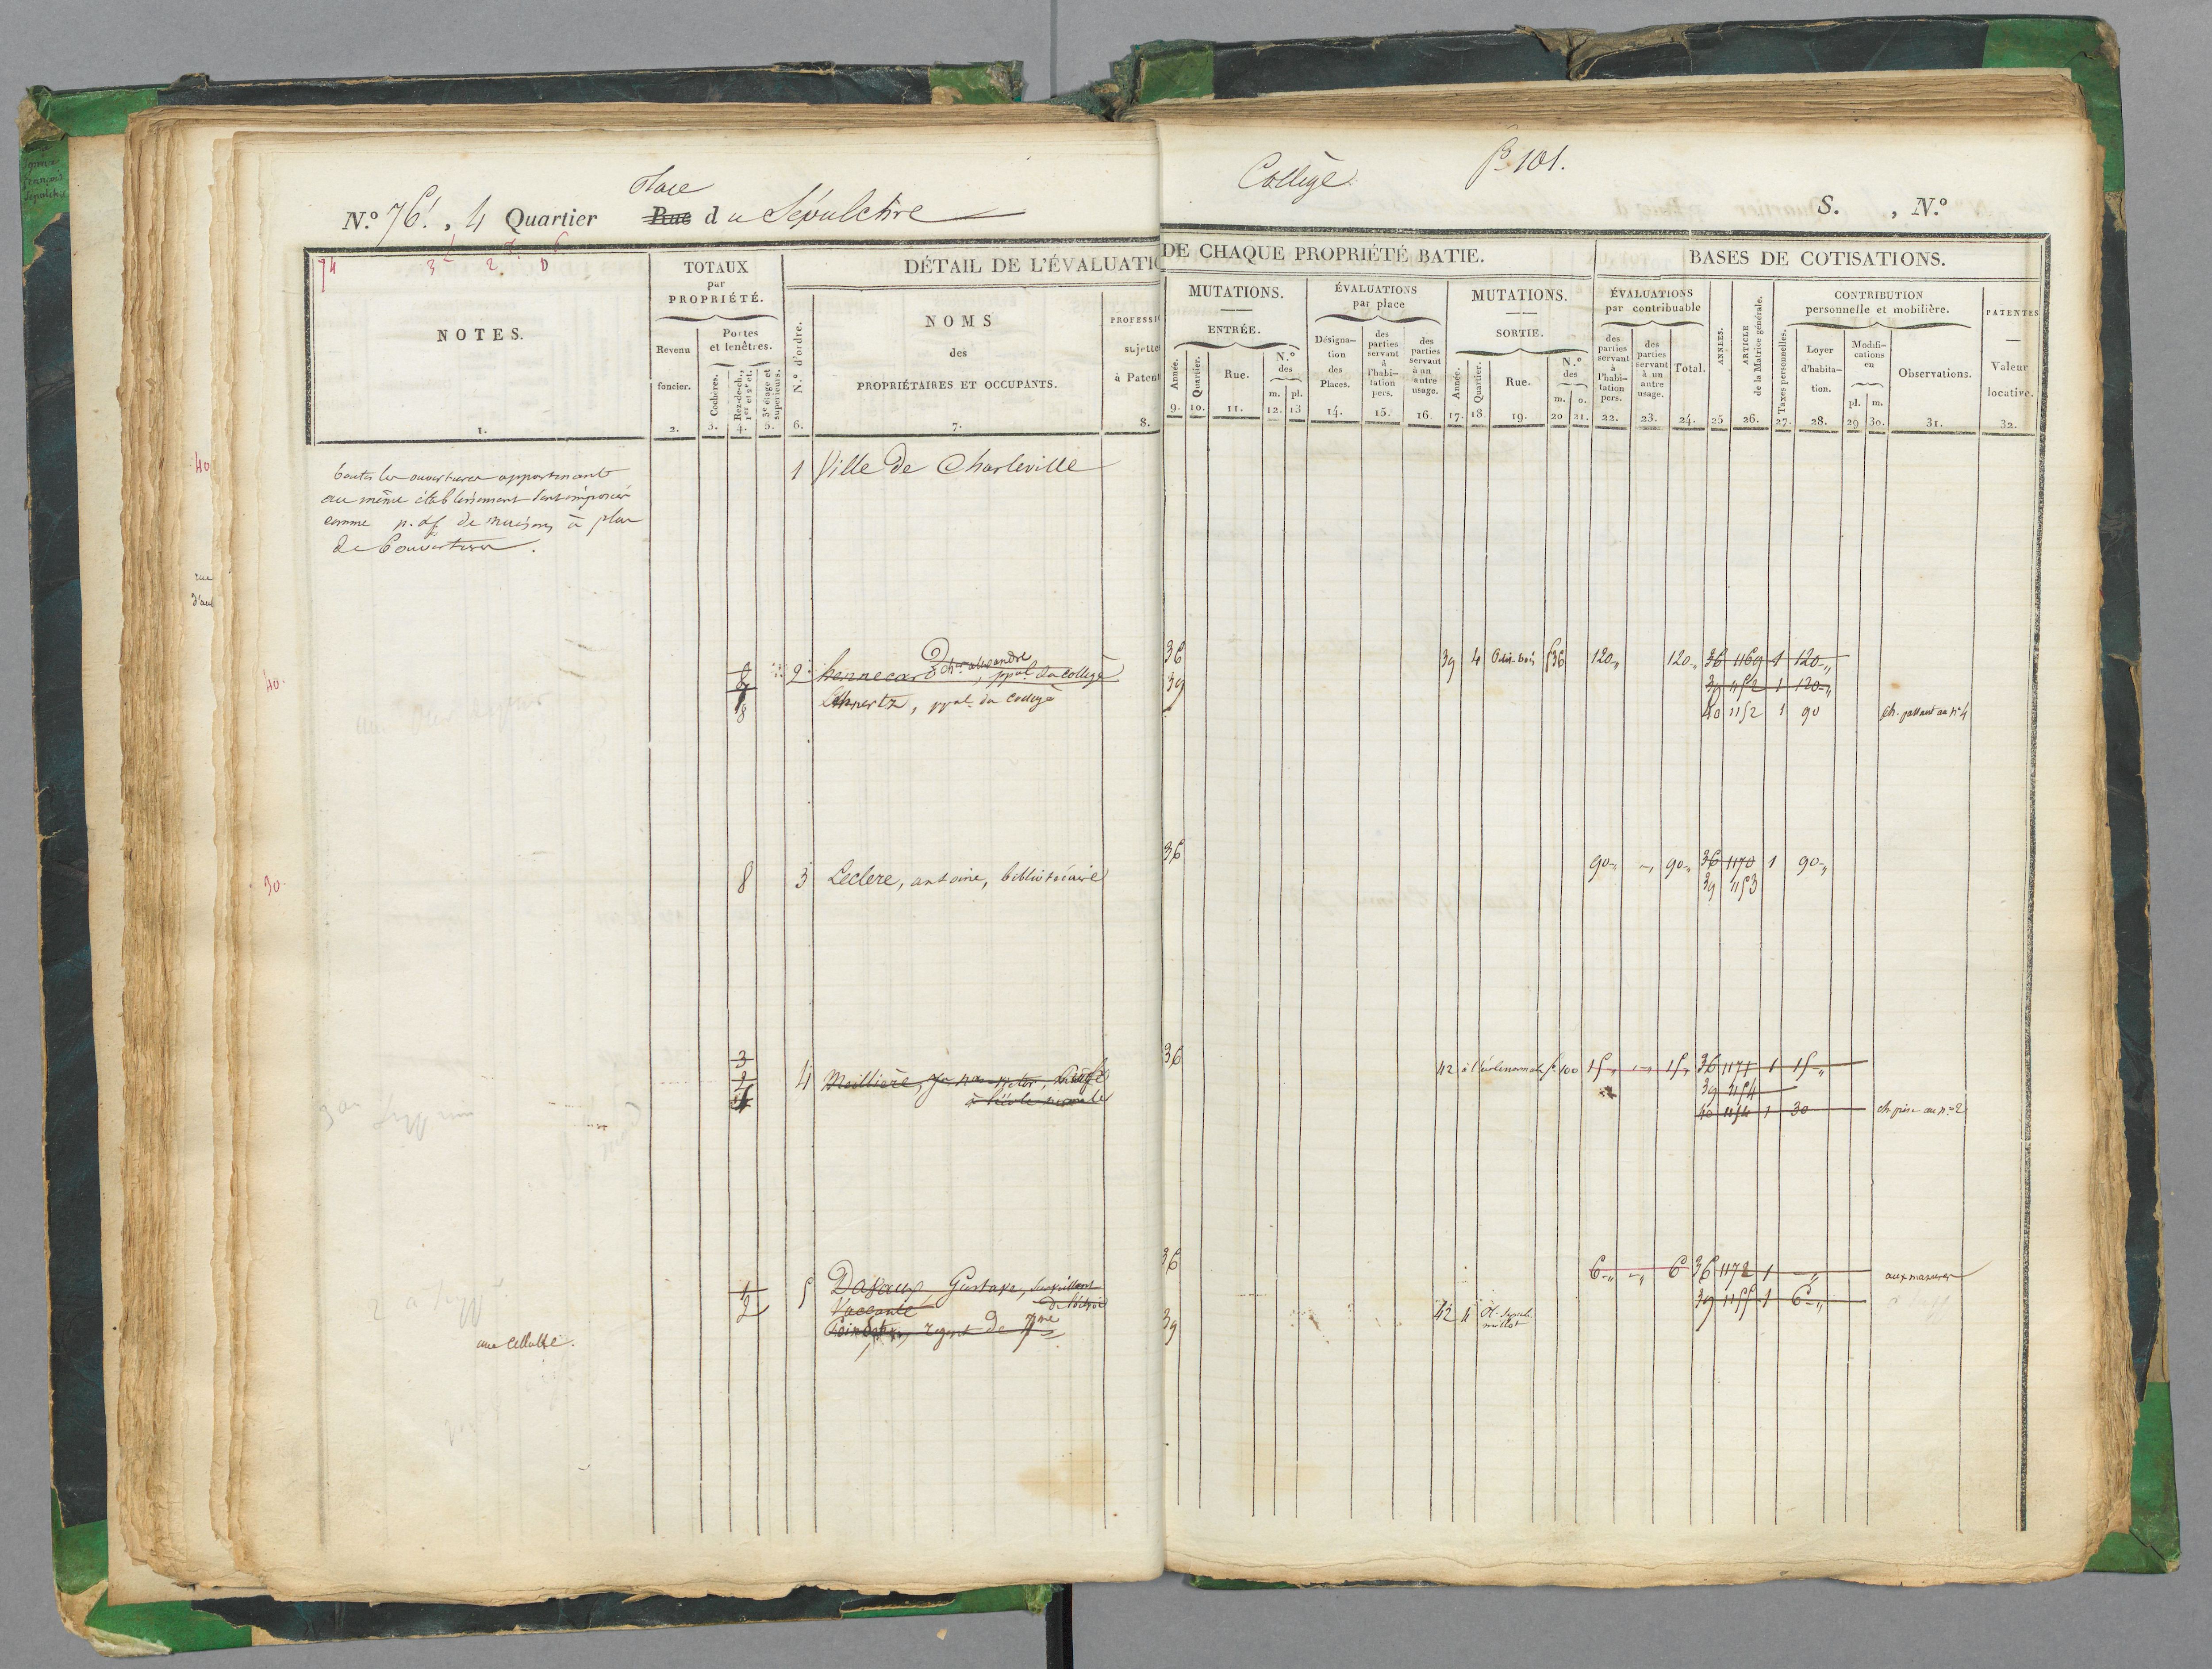 Place
N.º 76 , 4 Quartier Rue du Sépulchre
Collège
fº 101.
S. , N.º
74 3 2 D
TOTAUX
par
PROPRIÉTÉ.
DÉTAIL DE L'ÉVALUATIO
DE CHAQUE PROPRIÉTÉ BATIE.
BASES DE COTISATIONS.
NOTES.
Revenu
foncier.
Portes
et fenêtres.
Cochères.
Rez-de-ch.,
1er et 2e ét.
3e étage et
supérieurs.
N.º d'ordre.
NOMS
des
PROPRIÉTAIRES ET OCCUPANTS.
PROFESSIO
sujettes
à Patent
MUTATIONS.
ENTRÉE.
Année.
Quartier.
Rue.
N.º
des
m. pl.
ÉVALUATIONS
par place
Désigna-
tion
des
Places.
des
parties
servant
à
l'habi-
tation
pers.
des
parties
servant
à un
autre
usage.
MUTATIONS.
SORTIE.
Année.
Quartier.
Rue.
N.º
des
m. o.
ÉVALUATIONS
par contribuable
des
parties
servant
à
l'habi-
tation
pers.
des
parties
servant
à un
autre
usage.
Total.
ANNÉES.
ARTICLE
de la Matrice générale.
CONTRIBUTION
personnelle et mobilière.
Taxes personnelles.
Loyer
d'habita-
tion.
Modifi-
cations
en
pl. m.
Observations.
PATENTES
Valeur
locative.
1. 2. 3. 4. 5. 6. 7. 8. 9. 10. 11. 12. 13 14. 15. 16. 17. 18. 19. 20 21. 22. 23. 24. 25 26. 27. 28. 29 30. 31. 32.
40
toutes les ouvertures appartenant
au même établissement sont imposées
comme p. & f. de maisons à plus
de 6 ouvertures.
1 Ville de Charleville
rue
40.
2 hennecart ch. alexandre, ppal du collège 36 39 4 36 120 120 36 1169 1 120
Lehnertz, ppal du collège 39 39 1152 1 120
8 40 1152 1 90 ch. passant au nº 4
30.
8 3 Leclere, antoine, bibliothécaire 36 90 90 36 1170 1 90
39 1153
3 36
4 Meillière, 42 à l'école normale fº 100 15 15 36 1171 1 15
à l'école normale 39 1154
40 1154 1 30 ch. prise au nº 2
36
1 5 Dazaux, Gustave, surveillant 6 6 36 1172 1 aux masures
2 Vacante de l'octroi 39 1155 1 6
régent de 7me 39 42 4
une cellule.